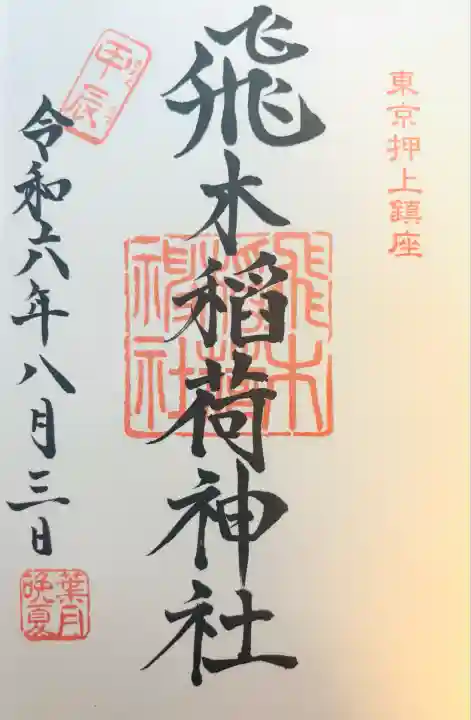 東京押上鎮座
飛木稲荷神社
飛木稲荷神社
甲辰
令和六年八月三日
葉月
晩夏